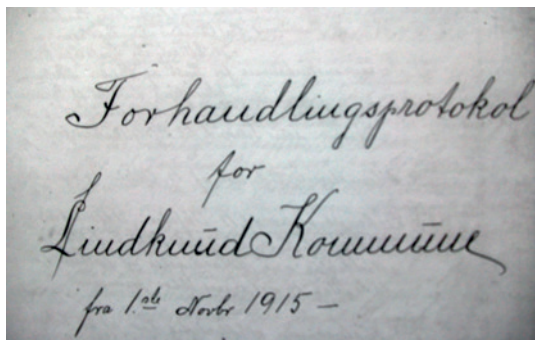 Forhandlingsprotokol
for
Lindknud Kommune
fra 1.ste Novbr 1915 –